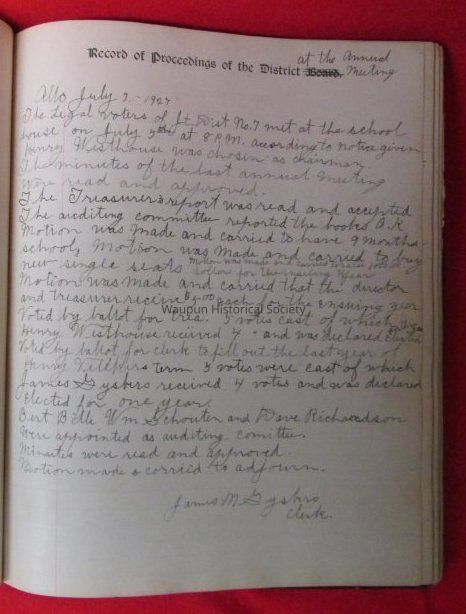 at the Annual
Record of Proceedings of the District Board, Meeting
Alto July 7 - 1927
The Legal voters of Jt. Dist No. 7 met at the school
house on July at 8 P.M. according to notice given
Henry Westhouse was chosen as chairman
The minutes of the last annual meeting
were read and approved.
The Treasurers report was read and accepted
The auditing committee reported the books O.K
Motion was made and carried to have 9 months
school, Motion was made and carried to buy
new single seats Motion was made and carried to
dollars for the ensuing year
Motion was made and carried that the director
and treasurer recieve 5.00 each for the ensuing year
Voted by ballot for trea. 5 votes cast of which
Henry Westhouse recieved 4 and was declared elected
Voted by ballot for clerk to fill out the last year of
Henry term 5 votes were cast of which
James Gysbers recieved 4 votes and was declared
Elected for one year
Bert Bille Wm Schouten and Dave Richardson
were appointed as auditing comittee.
Minutes were read and approved.
Motion made & carried to adjourn.
James M Gysbers
Clerk.
Waupun Historical Society